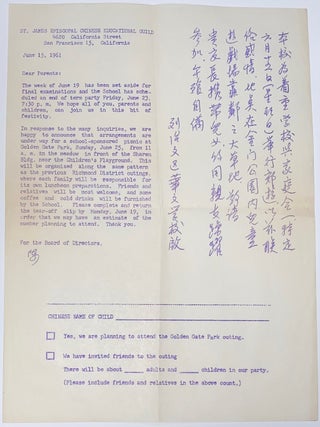 ST. JAMES EPISCOPAL CHINESE EDUCATIONAL GUILD
4620 California Street
San Francisco 18, California
June 15, 1961
Dear Parents:
The week of June 19 has been set aside for
final examinations and the School has sche-
duled an end of term party Friday, June 23,
7:30 p. m. We hope all of you, parents and
children, can join us in this bit of
festivity.
In response to the many inquiries, we are
happy to announce that arrangements are
under way for a school-sponsored picnic at
Golden Gate Park, Sunday, June 25, from 11
a. m. in the meadow in front of the Sharon
Bldg. near the Children's Playground. This
will be organized along the same pattern
as the previous Richmond District outings,
where each family will be responsible for
its own luncheon preparations. Friends and
relatives will be most welcome, and some
coffee and cold drinks will be furnished
by the School. Please complete and return
the tear-off slip by Monday, June 19, in
order that we may have an estimate of the
number planning to attend. Thank you.
For the Board of Directors,
本校為着重學校與家庭合一特定
六月廿五日(星期日)舉行郊遊以資聯
絡感情地點在金門公園內兒童
遊戲場鄰之大草地敬請
貴家長携帶兒女約同親友踴躍
參加午飯自備
列治文區華文學校啟
CHINESE NAME OF CHILD
Yes, we are planning to attend the Golden Gate Park outing.
We have invited friends to the outing
There will be about adults and children in our party.
(Please include friends and relatives in the above count.)